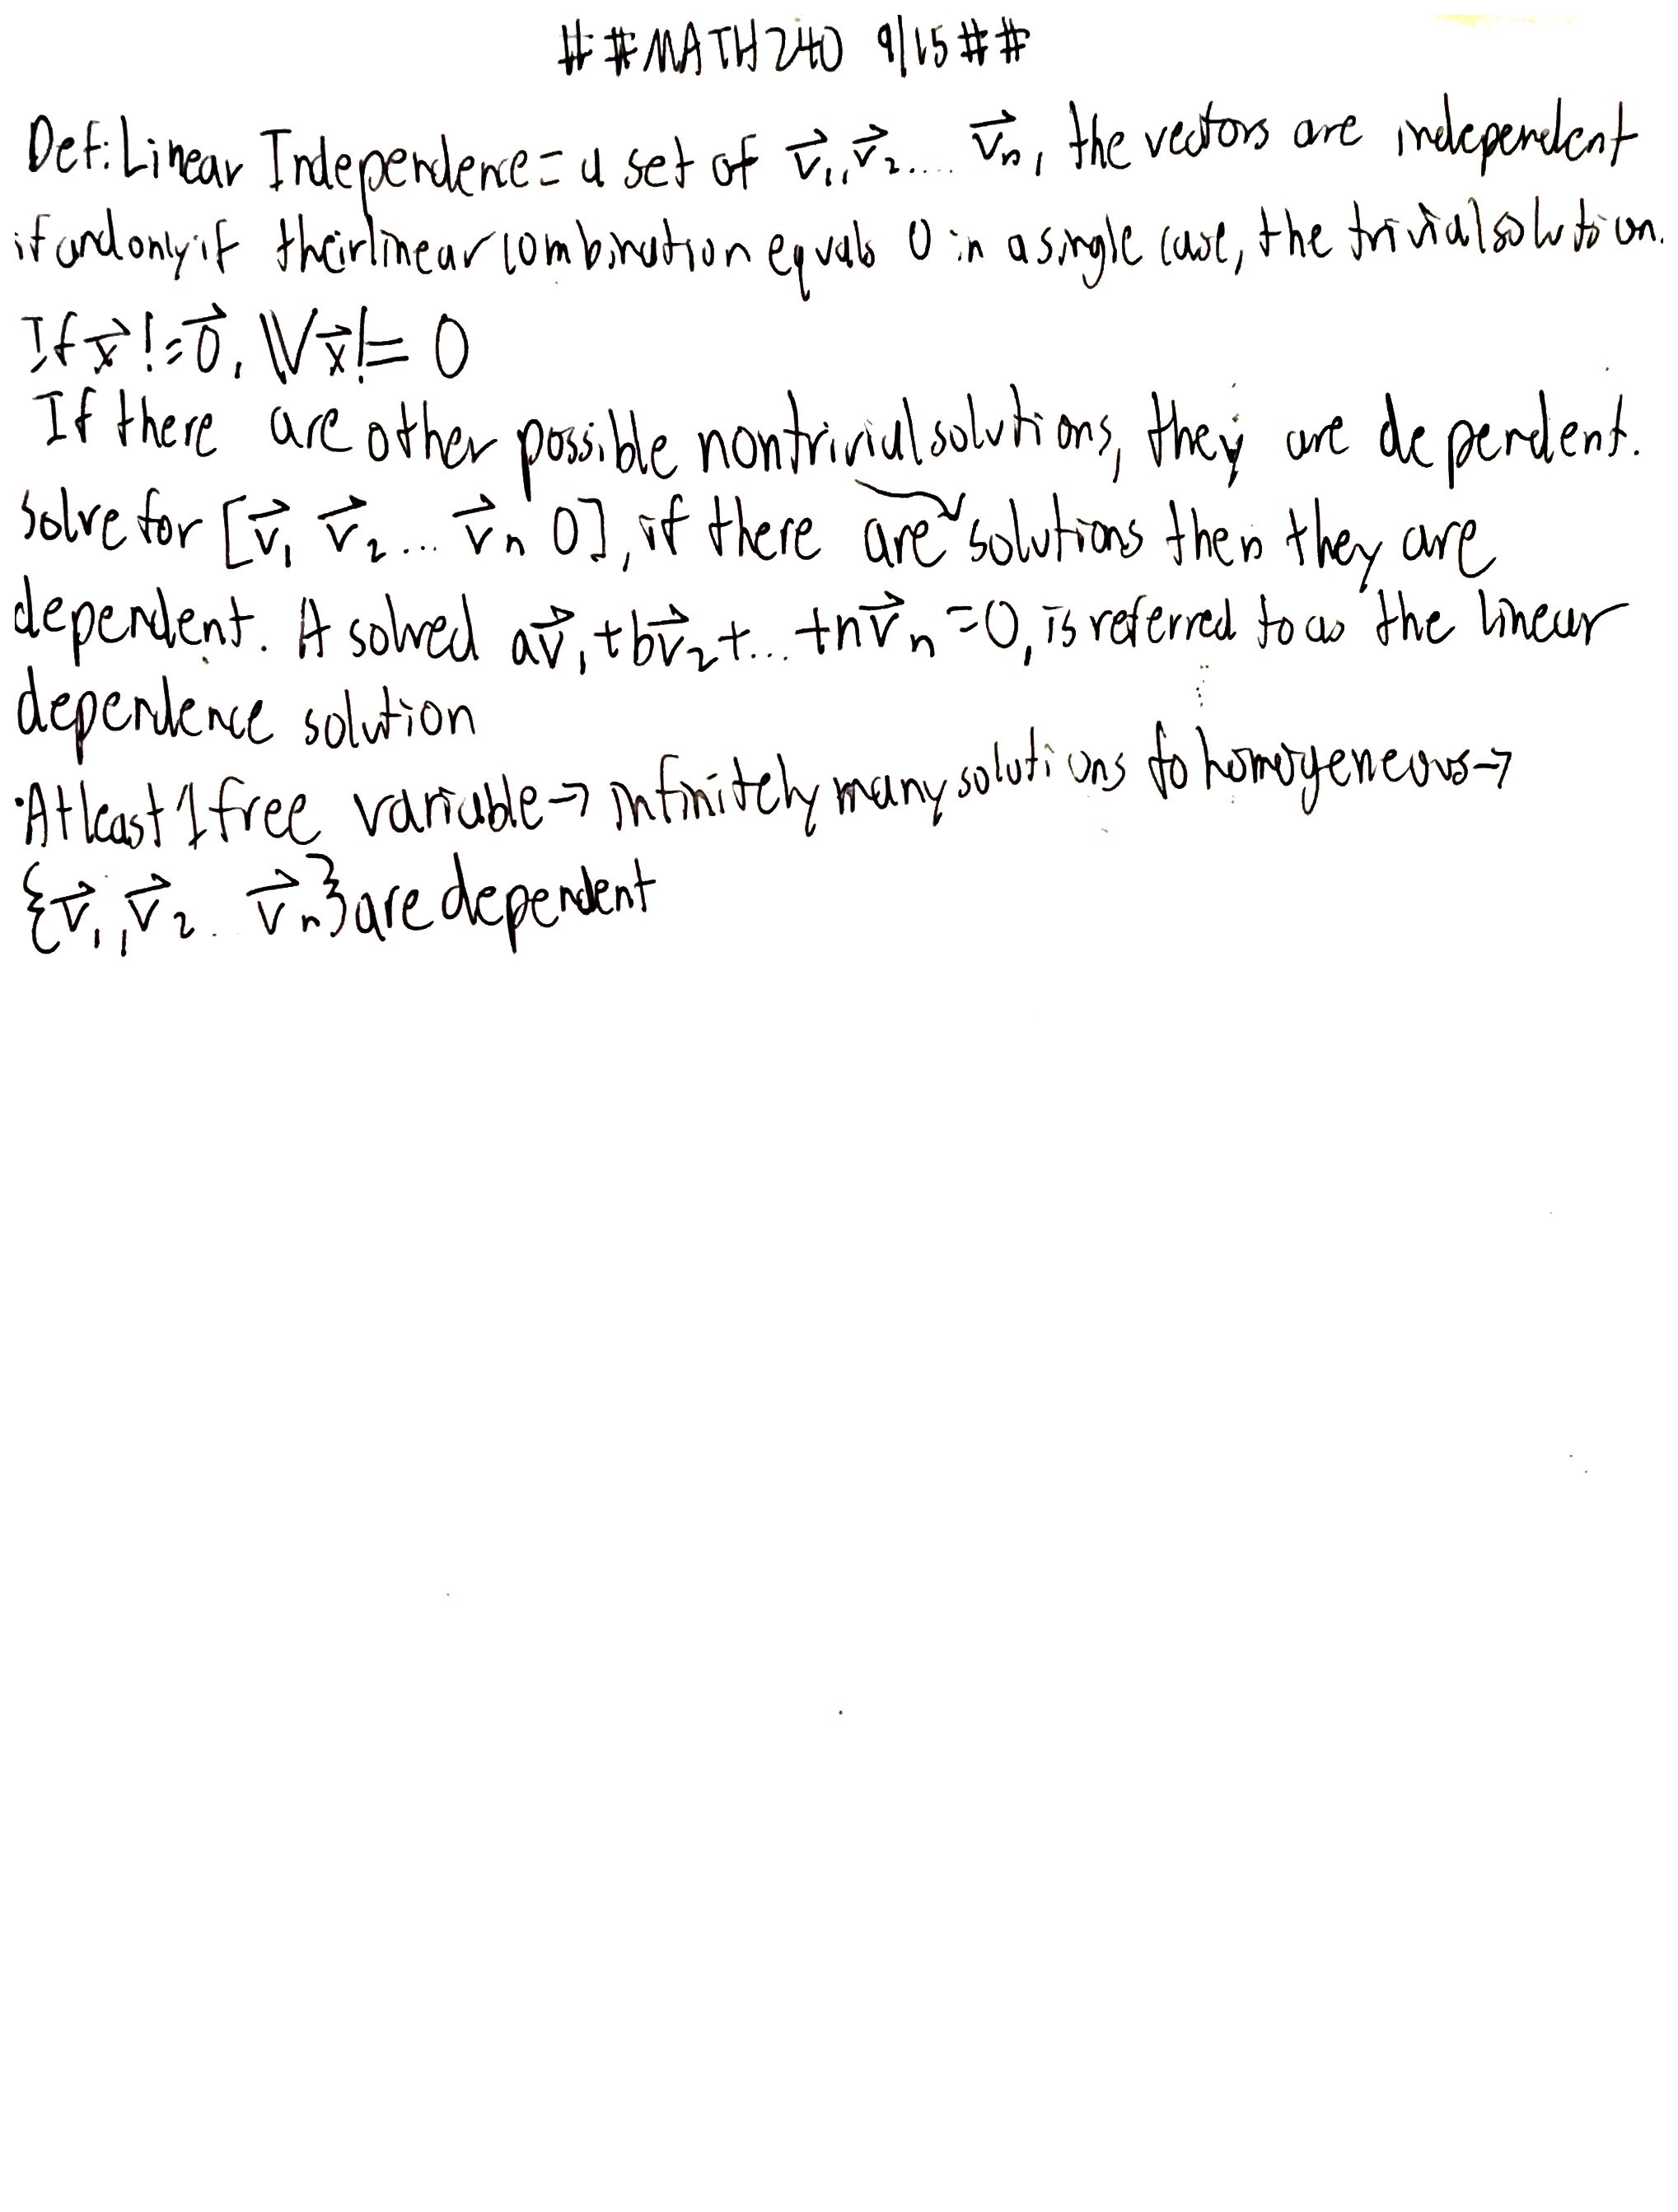 ##MATH240 9/15##
Def: Linear Independence = a set of v⃗₁, v⃗₂.... v⃗ₙ, the vectors are independent
if and only if their linear combination equals 0 in a single case, the trivial solution.
If x⃗ != 0⃗, Vx⃗ != 0
If there are other possible nontrivial solutions, they are dependent.
Solve for [v⃗₁ v⃗₂... v⃗ₙ 0], if there are solutions then they are
dependent. A solved av⃗₁+bv⃗₂+... +nv⃗ₙ=0, is referred to as the linear
dependence solution
·At least 1 free variable → infinitely many solutions to homogeneous →
{v⃗₁, v⃗₂.. v⃗ₙ} are dependent